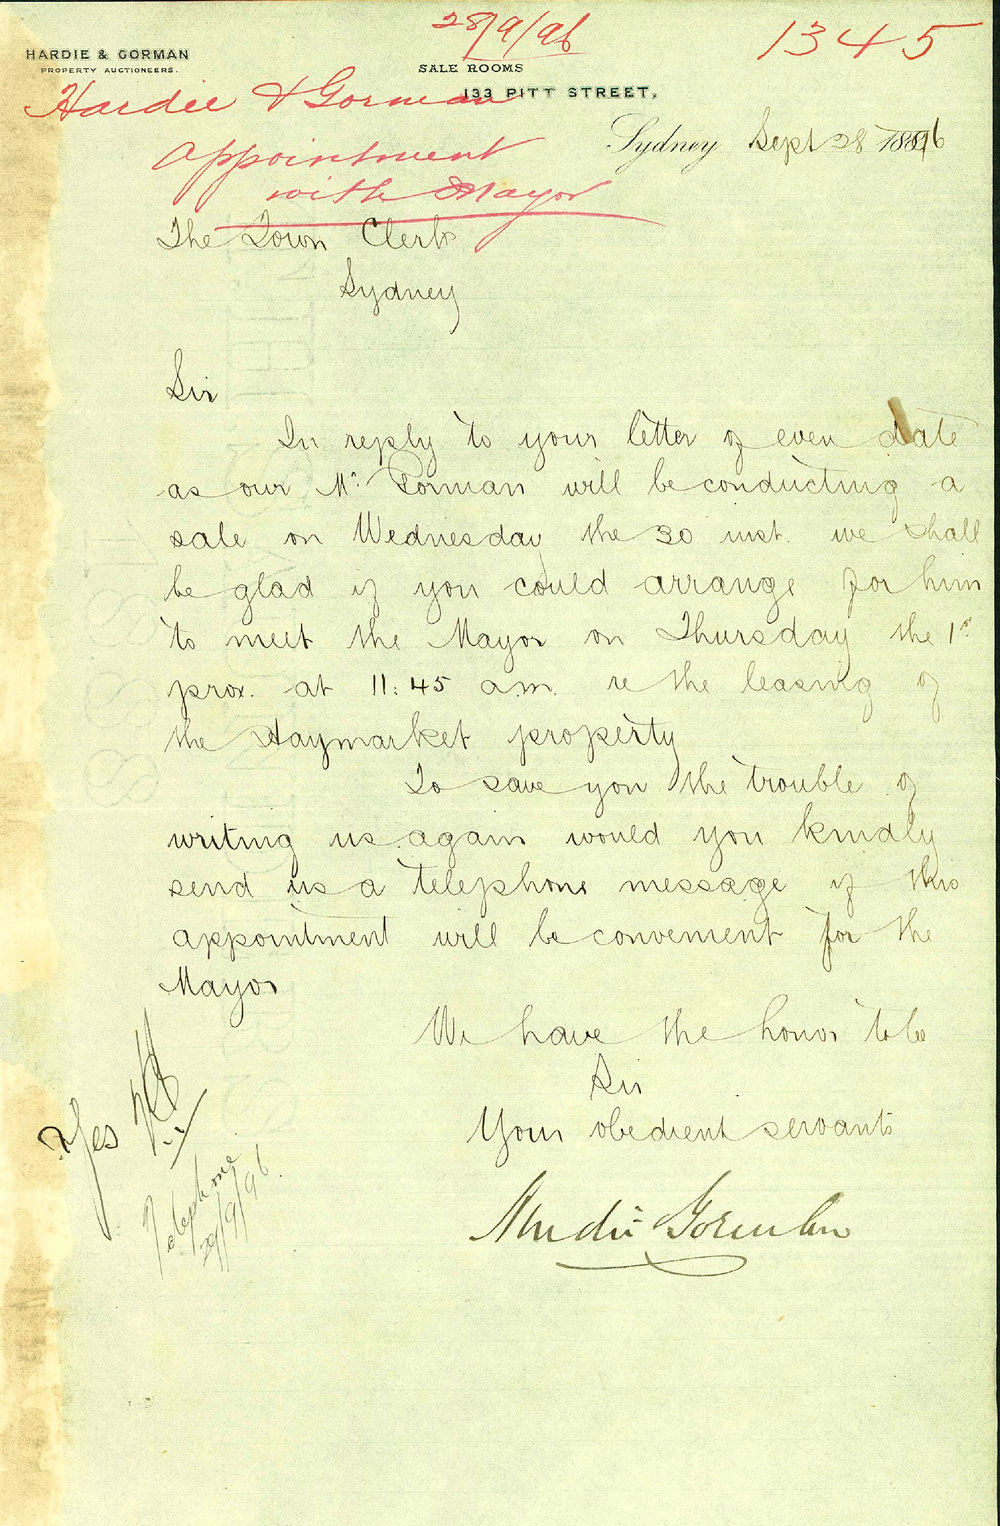 28/9/96
1345
HARDIE & GORMAN
PROPERTY AUCTIONEERS.
SALE ROOMS
133 PITT STREET,
Hardie & Gorman
Appointment
with Mayor
Sydney Sept 28 1896
The Town Clerk
Sydney
Sir
In reply to your letter of even date
as our Mr. Gorman will be conducting a
sale on Wednesday the 30 inst. we shall
be glad if you could arrange for him
to meet the Mayor on Thursday the 1st
prox. at 11:45 a.m. re the leasing of
the Haymarket property
To save you the trouble of
writing us again would you kindly
send us a telephone message if this
appointment will be convenient for the
Mayor
We have the honor to be
Sir
Your obedient servants
Hardie Gorman
Yes
Telephone
29/9/96.